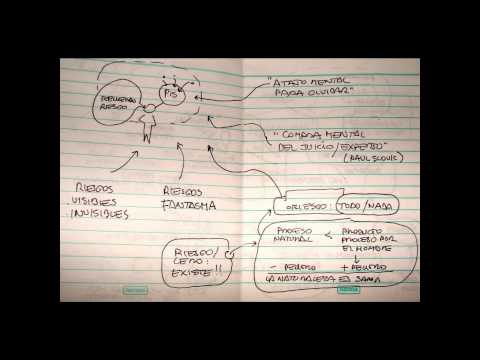 PIS
RIESGO
"ATAJO MENTAL
PARA OLVIDAR"
"COMODA MENTAL
DEL JUICIO/EXPERTO"
(PAUL SLOVIC)
RIESGOS
VISIBLES
INVISIBLES
RIESGOS
FANTASMA
RIESGO: TODO/NADA
PROCESO
NATURAL
<
PRODUCTO
PROCESO POR
EL HOMBRE
- PELIGRO
+ PELIGRO
LA NATURALEZA ES SANA
RIESGO/
CERO:
EXISTE!!